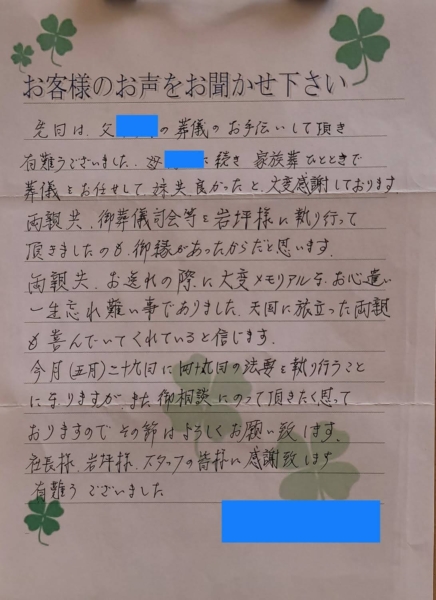 お客様のお声をお聞かせ下さい
先日は、父 の葬儀のお手伝いして頂き
有難うございました。母 に続き 家族葬ひとときで
葬儀をお任せして 妹共 良かったと、大変感謝しております
両親共、御葬儀司会等を岩坪様に執り行って
頂きましたのも、御縁があったからだと思います。
両親共、お送れの際に大変メモリアルな、お心遣い
一生忘れ難い事でありました、天国に旅立った両親
も喜んでいてくれていると信じます。
今月(五月)二十九日に四十九日の法要を執り行うこと
になりますが また御相談にのって頂きたく思って
おりますので その節はよろしくお願い致します、
社長様、岩坪様、スタッフの皆様に感謝致します
有難うございました